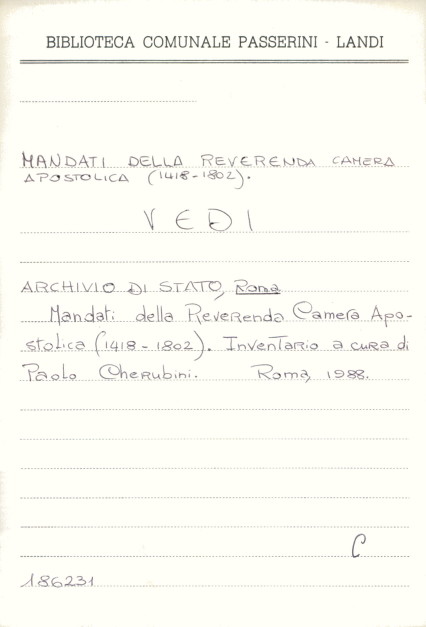 BIBLIOTECA COMUNALE PASSERINI - LANDI
MANDATI DELLA REVERENDA CAMERA
APOSTOLICA (1418-1802).
VEDI
ARCHIVIO DI STATO, Roma
Mandati della Reverenda Camera Apo-
stolica (1418 - 1802). Inventario a cura di
Paolo Cherubini. Roma, 1988.
C
186231